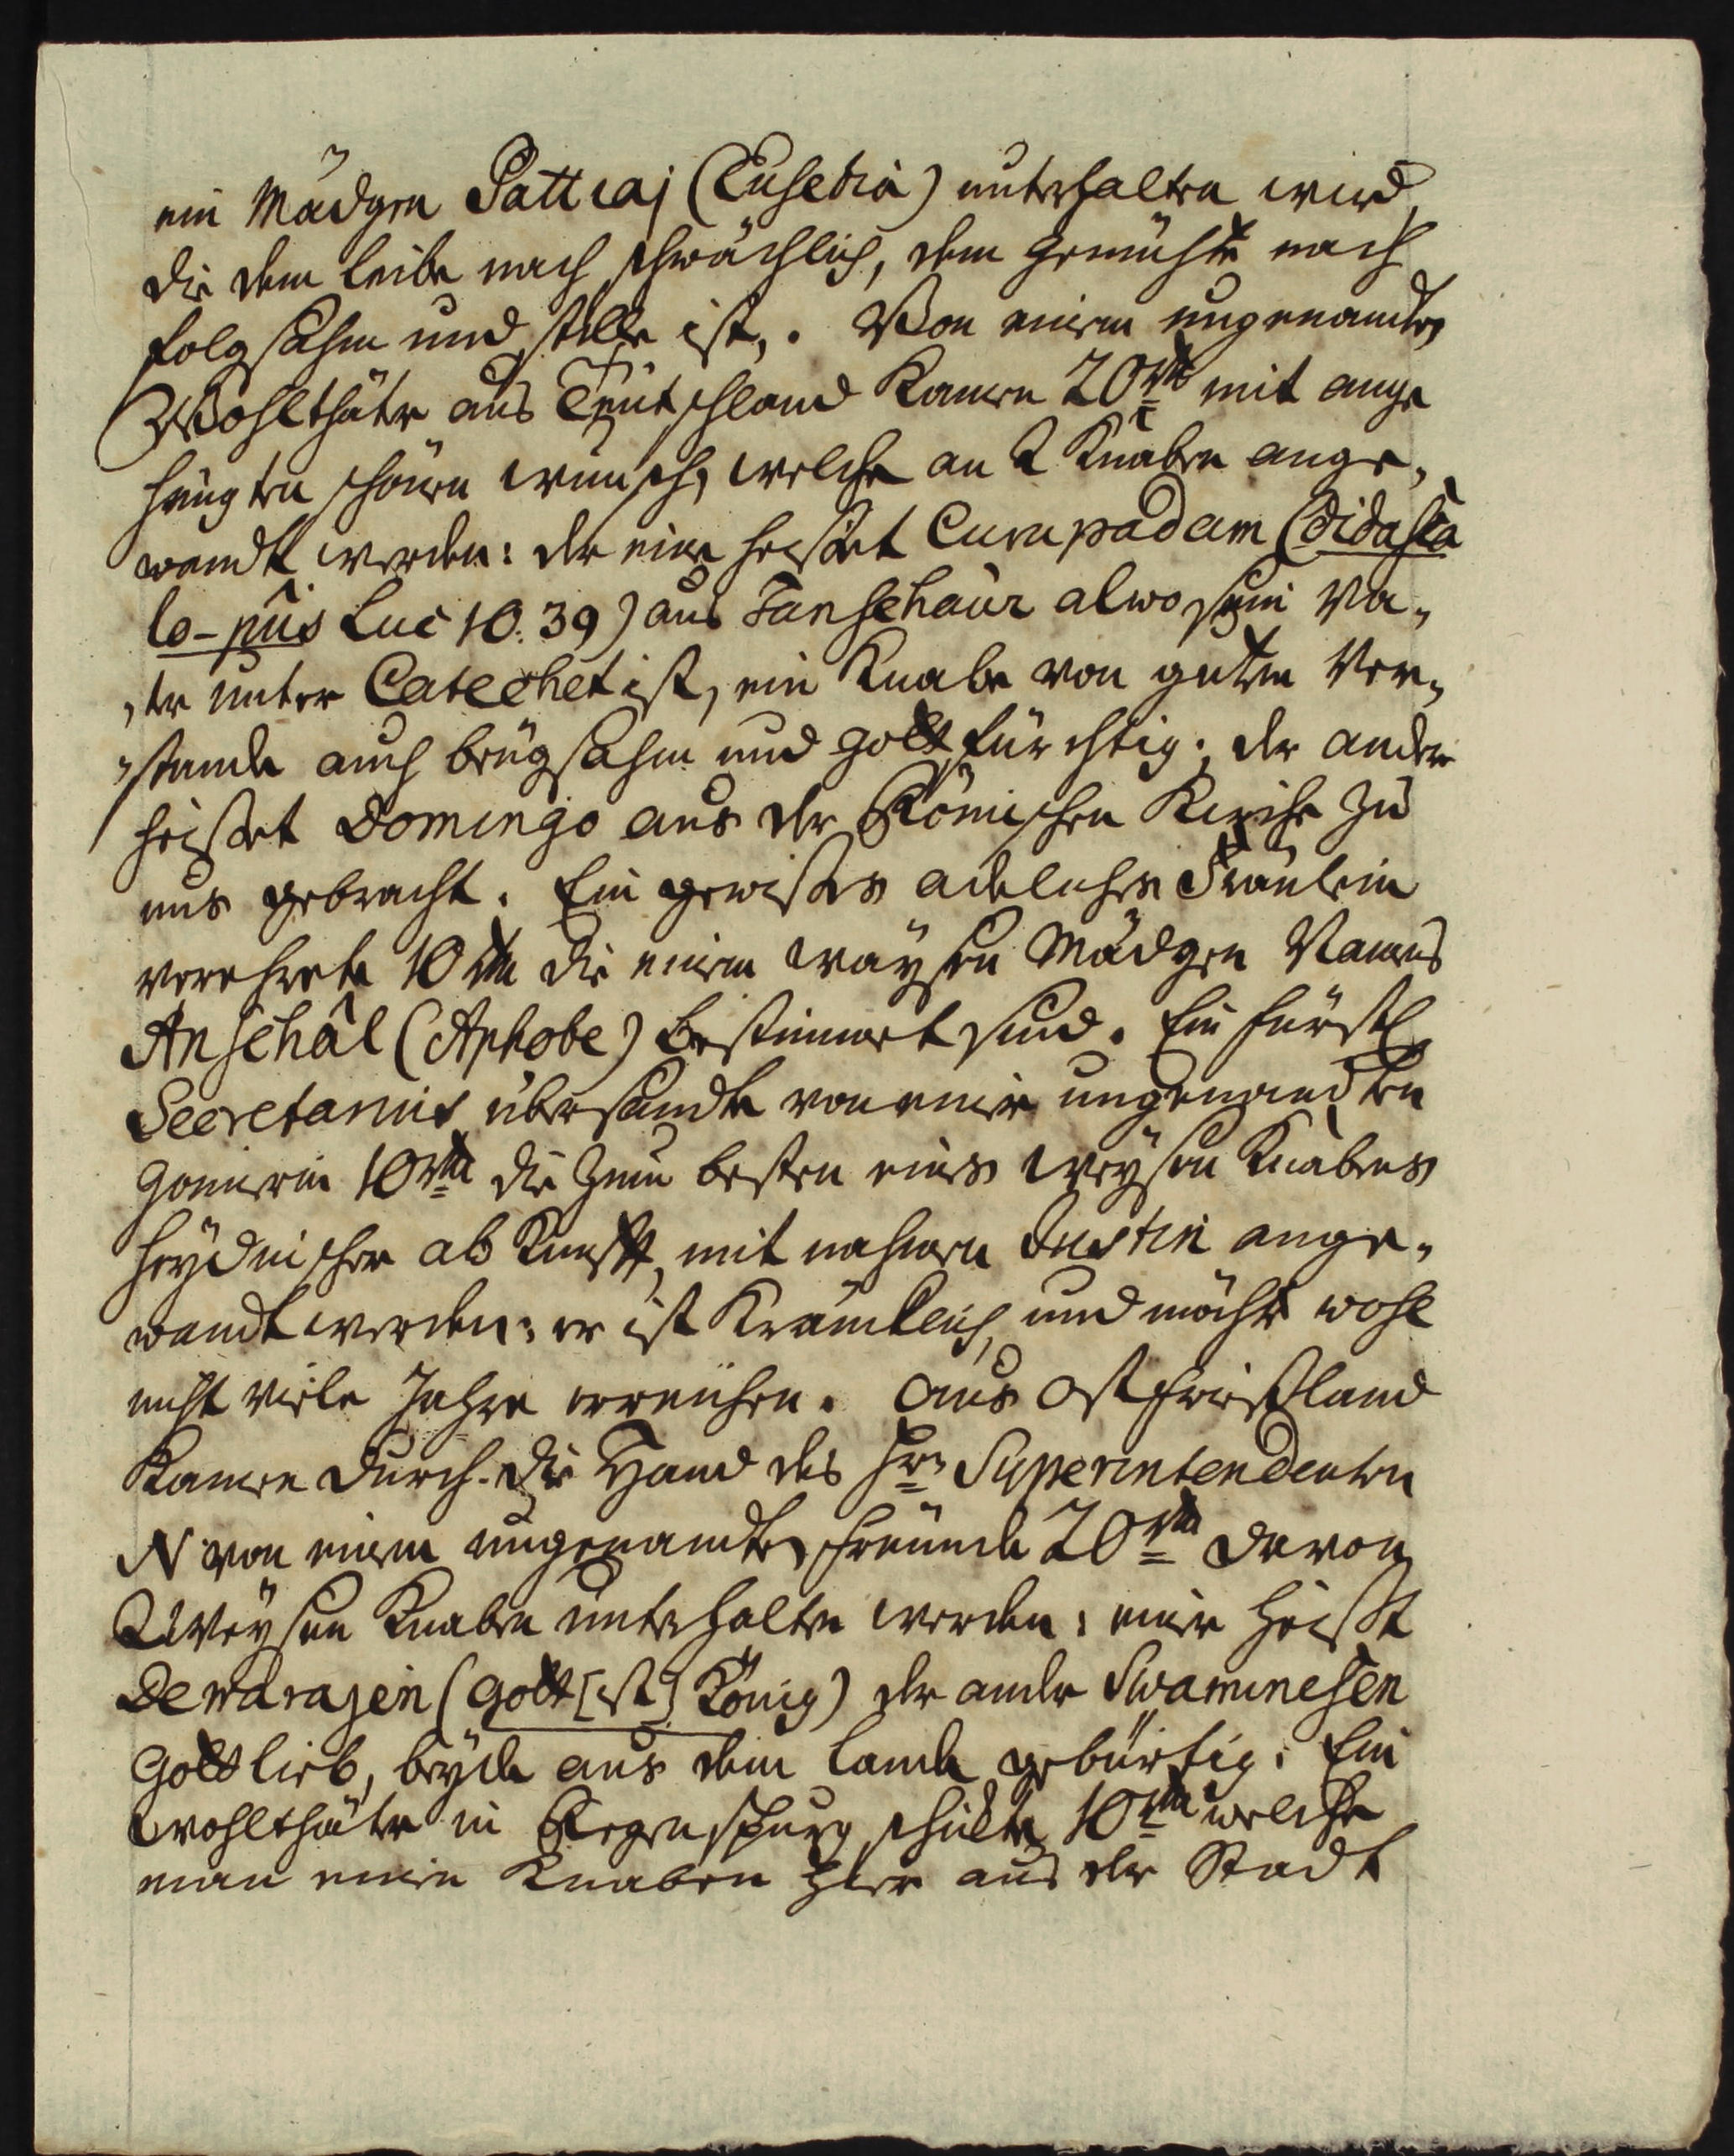 ein Mädgen Pattiaj (Eusebia) unterhalten wird,
die dem Leibe nach schwächlich, dem Gemühte nach
folgsahm und stille ist. Von einem ungenandten
Wohlthäter aus Teutschland kamen 20 rth mit ange
hengten schönen Wunsch, welche an 2 Knaben ange„
wandt werden: der eine heisset Curupadam (didasca
lo-pus Luc 10. 39) aus Tanschaur alwo sein Va„
„ter unter Catechet ist, ein Knabe von gutem Ver„
„stande auch beugsahm und gottfürchtig; der andere
heisset Domingo aus der Römischen Kirche zu
uns gebracht. Ein gewisses adeliches Fräulein
verehrete 10 rth die einem Wäysen Mädgen Namens
Anschál (Aphobe) bestimmet sind. Ein fürstl
Secretarius übersandte von einer ungenandten
Gönnerin 10 rth die zum besten eines Weysen Knabens
heydnischer abkunfft, mit nahmen Justin ange„
wandt werden: er ist kräncklich, und möchte wohl
nicht viele Jahre erreichen. Aus Ostfrießland
kamen durch die Hand des Hrn Superintendenten
N von einem ungenandten Freunde 20 rth davon
2 Weysen Knaben unterhalten werden: einer heisst
Dewarajen (Gott [ist] König) der andre Swaminesen
Gottlieb, beyde aus dem Lande gebürtig. Ein
Wohlthäter in Regenspurg schickte 10 rth welche
man einen Knaben hier aus der Stadt